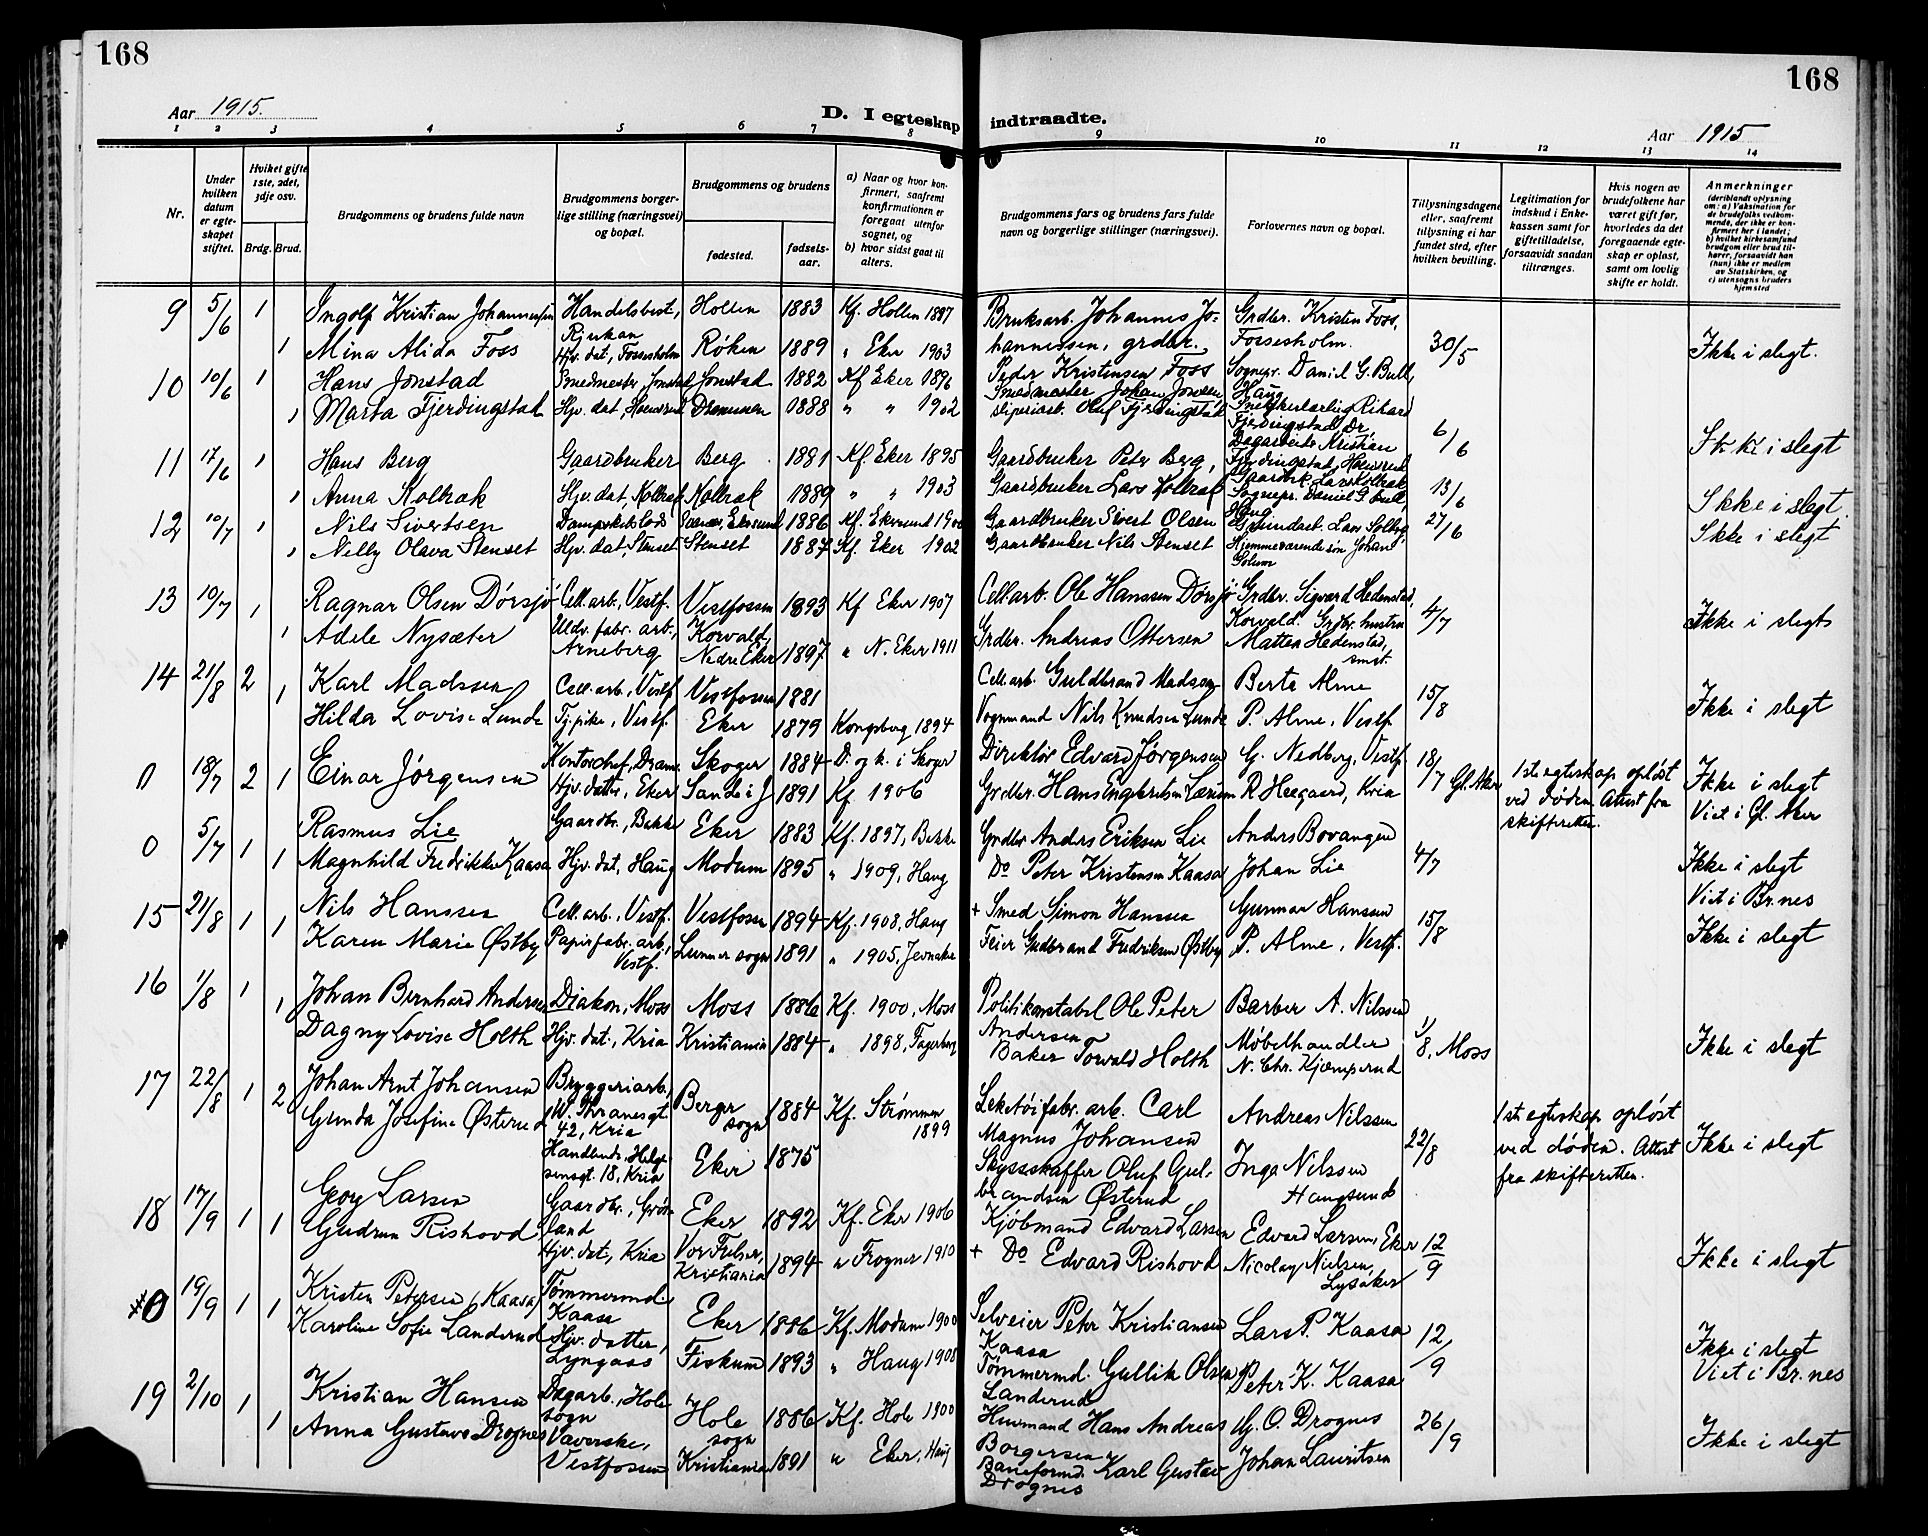 168
168
Aar 1915.
D. I egteskap indtraadte.
Aar 1915
1 2 3 4 5 6 7 8 9 10 11 12 13 14
Nr.
Under hvilken datum er egteskapet stiftet.
Hviket gifte 1ste, 2det, 3dje osv.
Brdg. Brud.
Brudgommens og brudens fulde navn
Brudgommens borgerlige stilling (næringsvei) og bopæl.
Brudgommens og brudens
fødested.
fødselsaar.
a) Naar og hvor konfirmert, saafremt konfirmationen er foregaat utenfor sognet, og
b) hvor sidst gaat til alters.
Brudgommens fars og brudens fars fulde navn og borgerlige stillinger (næringsvei).
Forlovernes navn og bopæl.
Tillysningsdagene eller, saafremt tillysning ei har fundet sted, efter hvilken bevilling.
Legitimation for indskud i Enkekassen samt for giftetilladelse, forsaavidt saadan tiltrænges.
Hvis nogen av brudefolkene har været gift før, hvorledes da det foregaaende egteskap er opløst, samt om lovlig skifte er holdt.
Anmerkninger (deriblandt oplysning om: a) Vaksination for de brudefolks vedkommende, der ikke er konfirmert her i landet; b) hvilket kirkesamfund brudgom eller brud tilhører, forsaavidt han (hun) ikke er medlem av Statskirken, og c) utensogns bruders hjemsted
9 5/6 1 Ingolf Kristian Johannessen Handelsbest, Rjukan Hollen 1883 Kf. Hollen 1897 Bruksarb. Johannes Johannessen, grdbr. Grdbr. Kristen Foss, Fossesholm.
1 Mina Alida Foss Hjv. dat, Fossesholm Røken 1889 " Eker 1903 Peder Kristensen Foss Sognepr. Daniel G. Bull, Haug 30/5 Ikke i slegt.
10 10/6 1 Hans Jonstad Smedmester Jonstad Jonstad 1882 Kf Eker 1896 Smedmester Johan Jonsen Snekkerlærling Rikard Fjerdingstad, Dr.
1 Marta Fjerdingstad Hjv. dat, Hoensrud Drammen 1888 " " 1902 slipeiarb. Oluf Fjerdingstad Dagarbeider Kristian Fjerdingstad, Hoensrud 6/6 Ikke i slegt
11 17/6 1 Hans Berg Gaardbruker Berg 1881 Kf. Eker 1895 Gaardbruker Peter Berg, Gaardbrk. Lars Kolbræk
1 Anna Kolbræk Hjv. dat. Kolbræk Kolbræk 1889 " " 1903 Gaardbruker Lars Kolbræk Sognepr. Daniel G. Bull, Haug. 13/6 Ikke i slegt.
12 10/7 1 Nils Sivertsen Dampskibslods Ekersund 1886 Kf. Ekersund 1900 Gaardbruker Sivert Olsen Lars Solberg, 27/6 Ikke i slegt
1 Nelly Olava Stenset Hjv. dat, Stenset Stenset 1887 Kf. Eker 1902 Gaardbruker Nils Stenset Hjemmeværende søn Johan Solum
13 10/7 1 Ragnar Olsen Dørsjö Cell. arb., Vestf. Vestfossen 1893 Kf Eker 1907 Cell. arb. Ole Hanssen Dørsjö Grdbr. Sigvard Hedenstad, Korvald. 4/7
1 Adele Nysæter Uldv. fabr. arb., Arneberg Korvald, Nedre Eker 1897 " N. Eker 1911 Grdbr. Andreas Ottersen Grdbr. hustru Mattea Hedenstad, smst. Ikke i slegt
14 21/8 2 Karl Madssen Cell. arb., Vestf Vestfossen 1881 Cell. arb. Guldbrand Madsen Berte Alme 15/8
1 Hilda Lovise Lunde Tj. pike, Vestf. Eker 1879 Kongsberg 1894 Vognmand Nils Knudsen Lunde P. Alme, Vestf Ikke i slegt
0 18/7 2 1 Einar Jørgensen Kontorchef, Dram. Skoger 1884 D. og k. i Skoger Direktör Edvard Jørgensen G. Nedberg, Vestf. 18/7 Gl. Aker 1ste egteskap opløst ved døden. Attest fra skifteretten. Ikke i slegt Viet i Gl. Aker
Hjv. datter, Eker Sande i J 1891 Kf. 1906 Grdbr. Hans Engebretsen Lærum R Heegaard, Kria
0 5/7 1 Rasmus Lie Gaardbr., Bakke Eker 1883 Kf. 1897, Bakke Grdbr Anders Eriksen Lie Anders Bovangen
1 Magnhild Fredrikke Kaasa Hjv. dat, Haug Modum 1895 " 1909, Haug Do Peter Kristensen Kaasa Johan Lie 4/7 Ikke i slegt Viet i Br.nes
15 21/8 1 1 Nils Hanssen Cell. arb., Vestf. Vestfossen 1894 Kf. 1908, Haug + Smed Simon Hanssen Gunnar Hanssen 15/8 Ikke i slegt
Karen Marie Østby Papirfabr. arb., Vestf. Lunner sogn 1891 " 1905, Jevnaker Feier Gudbrand Fredriksen Østby P. Alme, Vestf.
16 1/8 1 Johan Bernhard Andersen Diakon, Moss Moss 1886 Kf. 1900, Moss Politikonstabel Ole Peter Andersen Barber A. Nilssen
1 Dagny Lovise Holth Hjv. dat., Kria Kristiania 1884 " 1898, Fagerborg Baker Torvald Holth Møbelhandler N. Chr. Kjemperud 1/8, Moss Ikke i slegt
17 22/8 1 2 Johan Arnt Johansen Bryggeriarb., W. Thranesgt. 42, Kria Berger sogn 1884 Kf. Strømmen 1899 Leketöifabr. arb. Carl Magnus Johansen Andreas Nilssen 22/8 1ste egteskap opløst ved døden. Attest fra skifteretten. Ikke i slegt
Gunda Josefine Østerud Handlende, Helgesensgt. 18, Kria Eker 1875 Skysskaffer Oluf Gulbrandsen Østerud Inga Nilssen Haugsund
18 17/9 1 1 Georg Larsen Gaardbr., Grösland Eker 1892 Kf. Eker 1906 Kjöbmand Edvard Larsen Edvard Larsen, Eker 12/9
Gudrun Rishovd Hjv. dat., Kria Vor Frelser, Kristiania 1894 " Frogner 1910 + Do Edvard Rishovd Nicolay Nielsen, Lysaker Ikke i slegt
#0 19/9 1 1 Kristen Petersen (Kaasa) Tömmermd. Kaasa Eker 1886 Kf. Modum 1900 Selveier Peter Kristiansen Kaasa Lars P. Kaasa 12/9
Karoline Sofie Landerud Hjv. datter, Lyngaas Fiskum 1893 " Haug 1908 Tømmermd. Gullik Olsen Landerud Peter K. Kaasa Ikke i slegt Viet i Br.nes
19 2/10 1 Kristian Hansen Dagarb., Hole sogn Hole sogn 1886 Kf. Hole 1900 Husmand Hans Andreas Borgersen G. O. Drognes 26/9
1 Anna Gustava Drognes Væverske, Vestfossen Kristiania 1891 " Eker, Haug Baneformd. Karl Gustav Drognes Johan Lauritsen Ikke i slegt